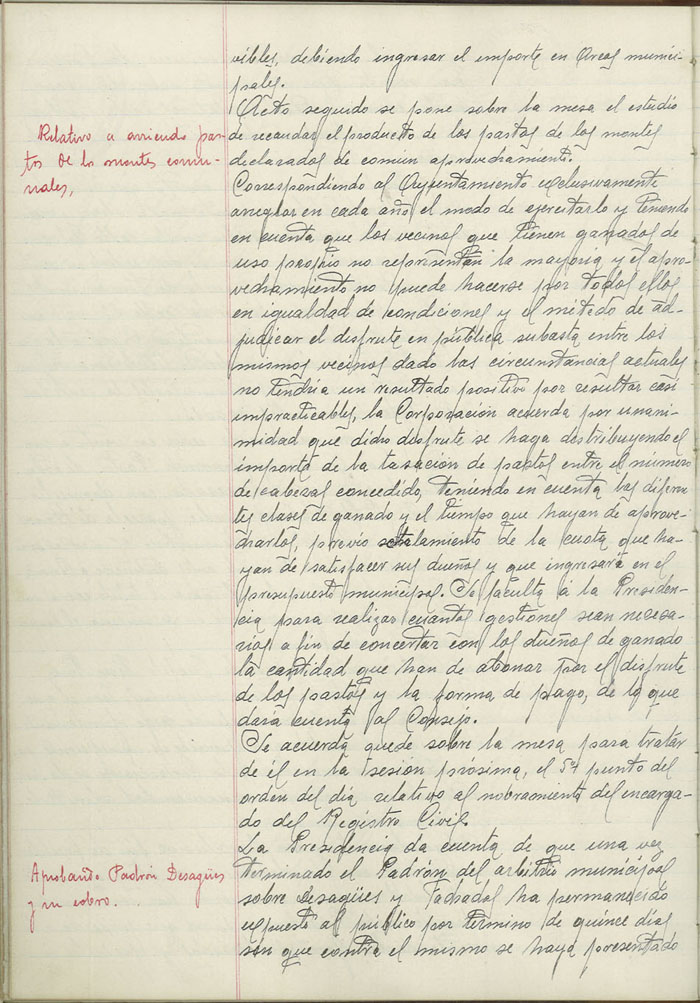 vibles, debiendo ingresar el importe en Arcas munici-
pales.
Acto seguido se pone sobre la mesa el estudio
Relativo a arriendo pas-
tos de los montes comu-
nales,
de recaudar el producto de los pastos de los montes
declarados de comun aprovechamiento.
Correspondiendo al Ayuntamiento exclusivamente
arreglar en cada año el modo de ejercitarlo y teniendo
en cuenta que los vecinos que tienen ganados de
uso propio no representan la mayoria y el apro-
vechamiento no puede hacerse por todos ellos
en igualdad de condiciones y el método de ad-
judicar el disfrute en pública subasta entre los
mismos vecinos dado las circunstancias actuales
no tendria un resultado positivo por resultar casi
impracticables, la Corporación acuerda por unani-
midad que dicho disfrute se haga distribuyendo el
importe de la tasación de pastos entre el número
de cabezas concedido, teniendo en cuenta las diferen
tes clases de ganado y el tiempo que hayan de aprove-
charlos, previo señalamiento de la cuota que ha-
yan de satisfacer sus dueños y que ingresará en el
presupuesto municipal. Se faculta á la Presiden-
cia para realizar cuantas gestiones sean necesa-
rias a fin de concertar con los dueños de ganado
la cantidad que han de abonar por el disfrute
de los pastos y la forma de pago, de lo que
dará cuenta al Consejo.
Se acuerda quede sobre la mesa para tratar
de él en la sesión prósima, el 5º punto del
orden del dia relativo al nobramiento del encarga-
do del Registro Civil.
La Presidencia da cuenta de que una vez
Aprobando Padrón Desagües
y su cobro.
terminado el Padrón del arbitrio municipal
sobre desagües y Fachadas ha permanecido
espuesto al público por término de quince dias
sin que contra el mismo se haya presentado